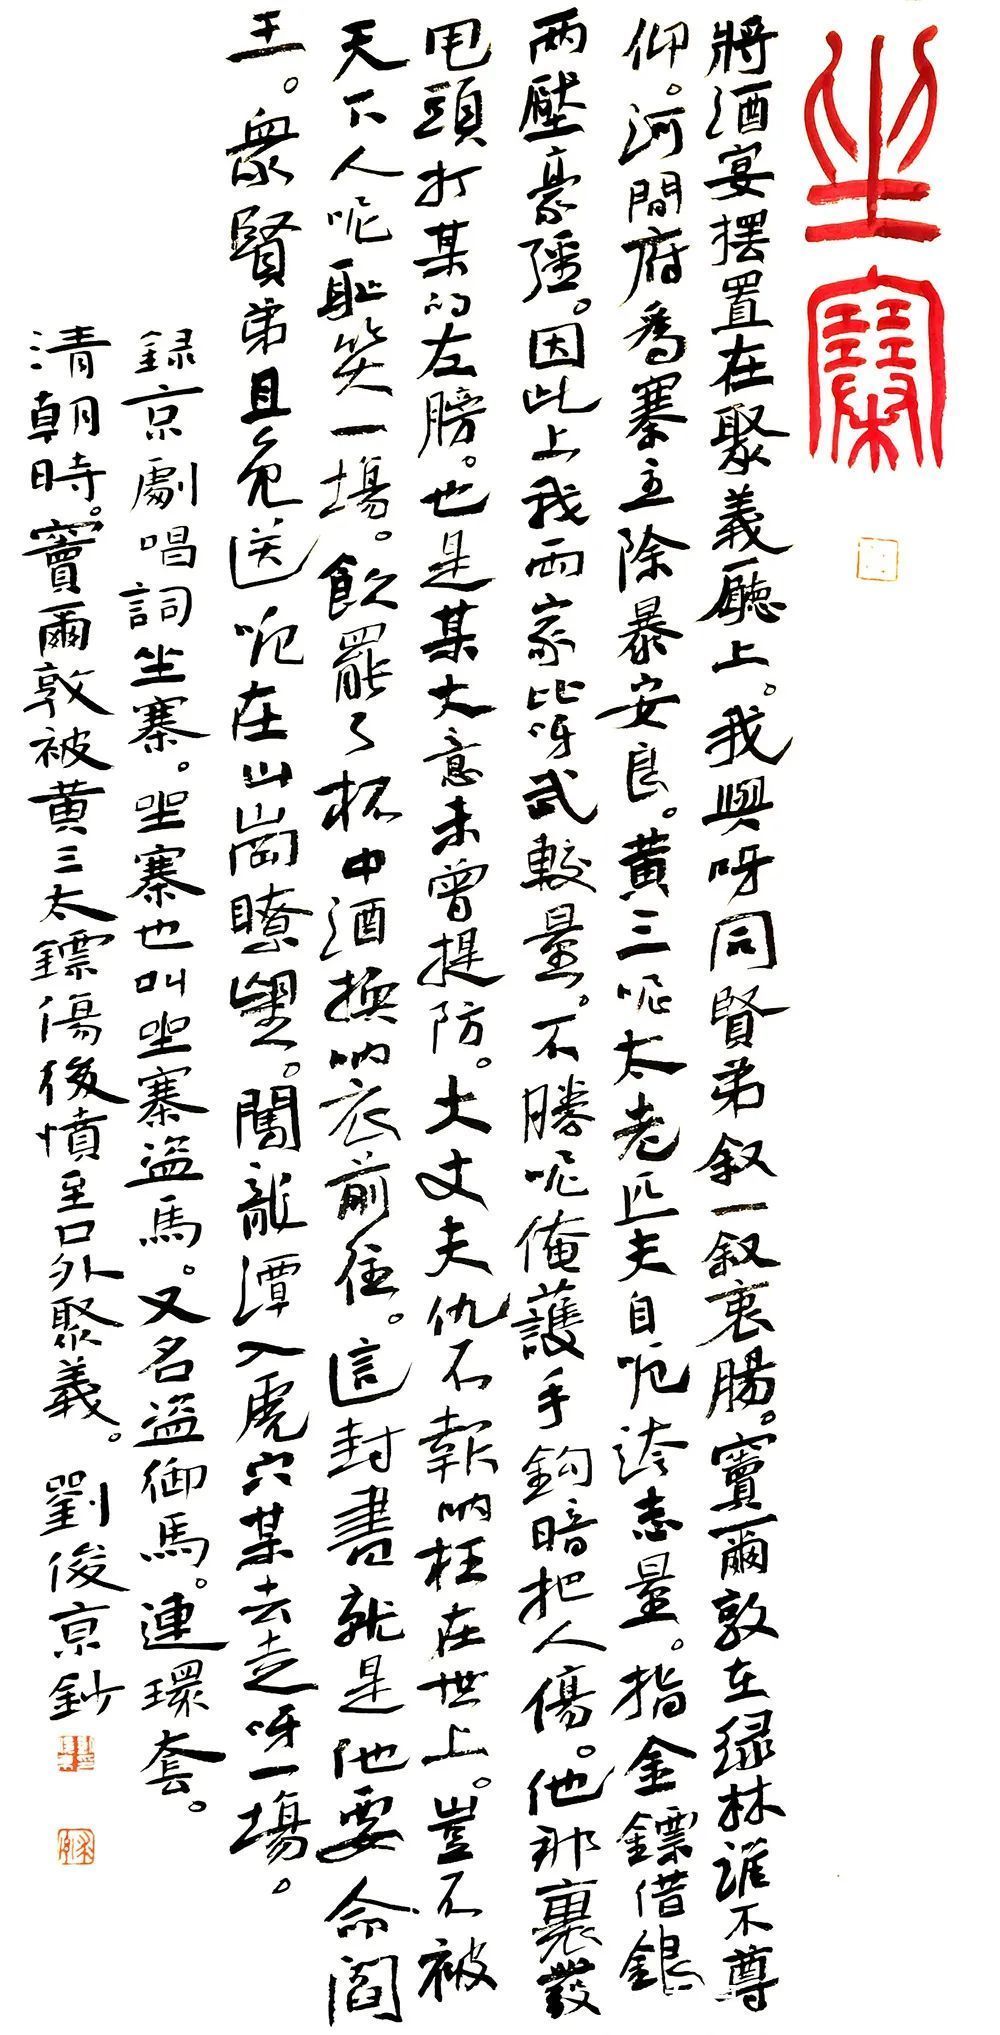 坐寨
將酒宴摆置在聚義廳上。我與呀同賢弟叙一叙衷腸。竇爾敦在绿林誰不尊
仰。河間府為寨主除暴安良。黄三呢太老匹夫自呃誇志量。指金鏢借銀
两壓豪强。因此上我两家比呀武較量。不勝呢俺護手鈎暗把人傷。他那裏發
甩頭打某的左膀。也是某大意未曾提防。大丈夫仇不報呐枉在世上。豈不被
天下人呢恥笑一場。飲罷了杯中酒換呐衣前往。這封書就是他要命閻
王。衆賢弟且免送呃在山崗瞭望。闖龍潭入虎穴某去走呀一場。
録京劇唱詞坐寨。坐寨也叫坐寨盗馬。又名盗御馬。連環套。
清朝時。竇爾敦被黄三太鏢傷後憤至口外聚義。劉俊京鈔